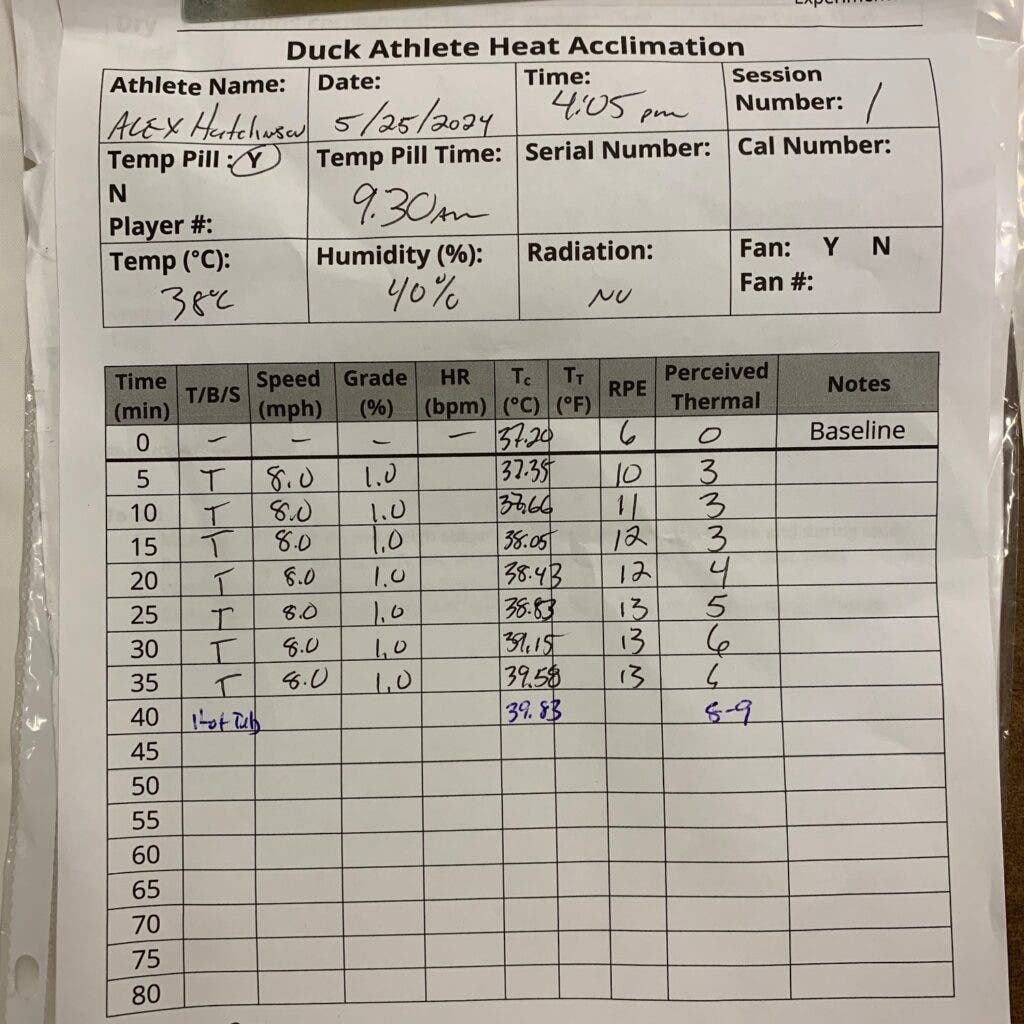 Duck Athlete Heat Acclimation
Athlete Name: Date: Time: Session Number:
ALEX Hutchinson 5/25/2024 4:05 pm 1
Temp Pill : Y N Temp Pill Time: Serial Number: Cal Number:
9.30 Am
Player #:
Temp (°C): Humidity (%): Radiation: Fan: Y N
38°C 40% NO Fan #:
Time (min) T/B/S Speed (mph) Grade (%) HR (bpm) Tc (°C) TT (°F) RPE Perceived Thermal Notes
0 – – – – 37.20 6 0 Baseline
5 T 8.0 1.0 37.35 10 3
10 T 8.0 1.0 37.66 11 3
15 T 8.0 1.0 38.05 12 3
20 T 8.0 1.0 38.43 12 4
25 T 8.0 1.0 38.83 13 5
30 T 8.0 1.0 39.15 13 6
35 T 8.0 1.0 39.58 13 6
40 Hot Tub 39.83 8-9
45
50
55
60
65
70
75
80